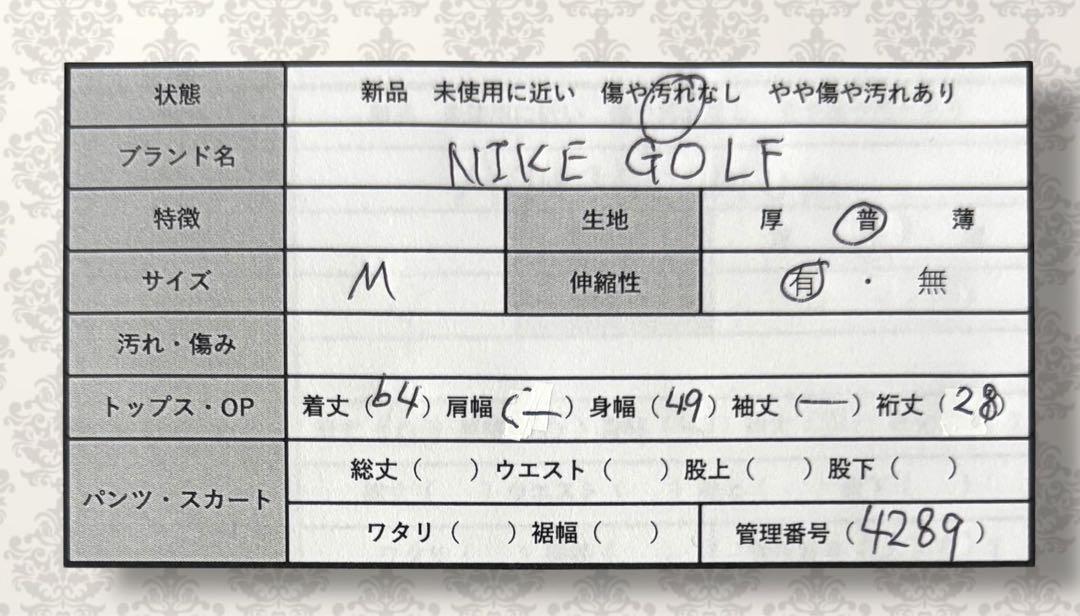 状態 新品 未使用に近い 傷や汚れなし やや傷や汚れあり
ブランド名 NIKE GOLF
特徴 生地 厚 普 薄
サイズ M 伸縮性 有・無
汚れ・傷み
トップス・OP 着丈（64）肩幅（—）身幅（49）袖丈（—）裄丈（28）
パンツ・スカート 総丈（ ）ウエスト（ ）股上（ ）股下（ ）
ワタリ（ ）裾幅（ ） 管理番号（4289）